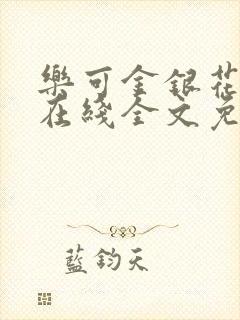 樂可金銀花
在綫全文免
藍鈞天